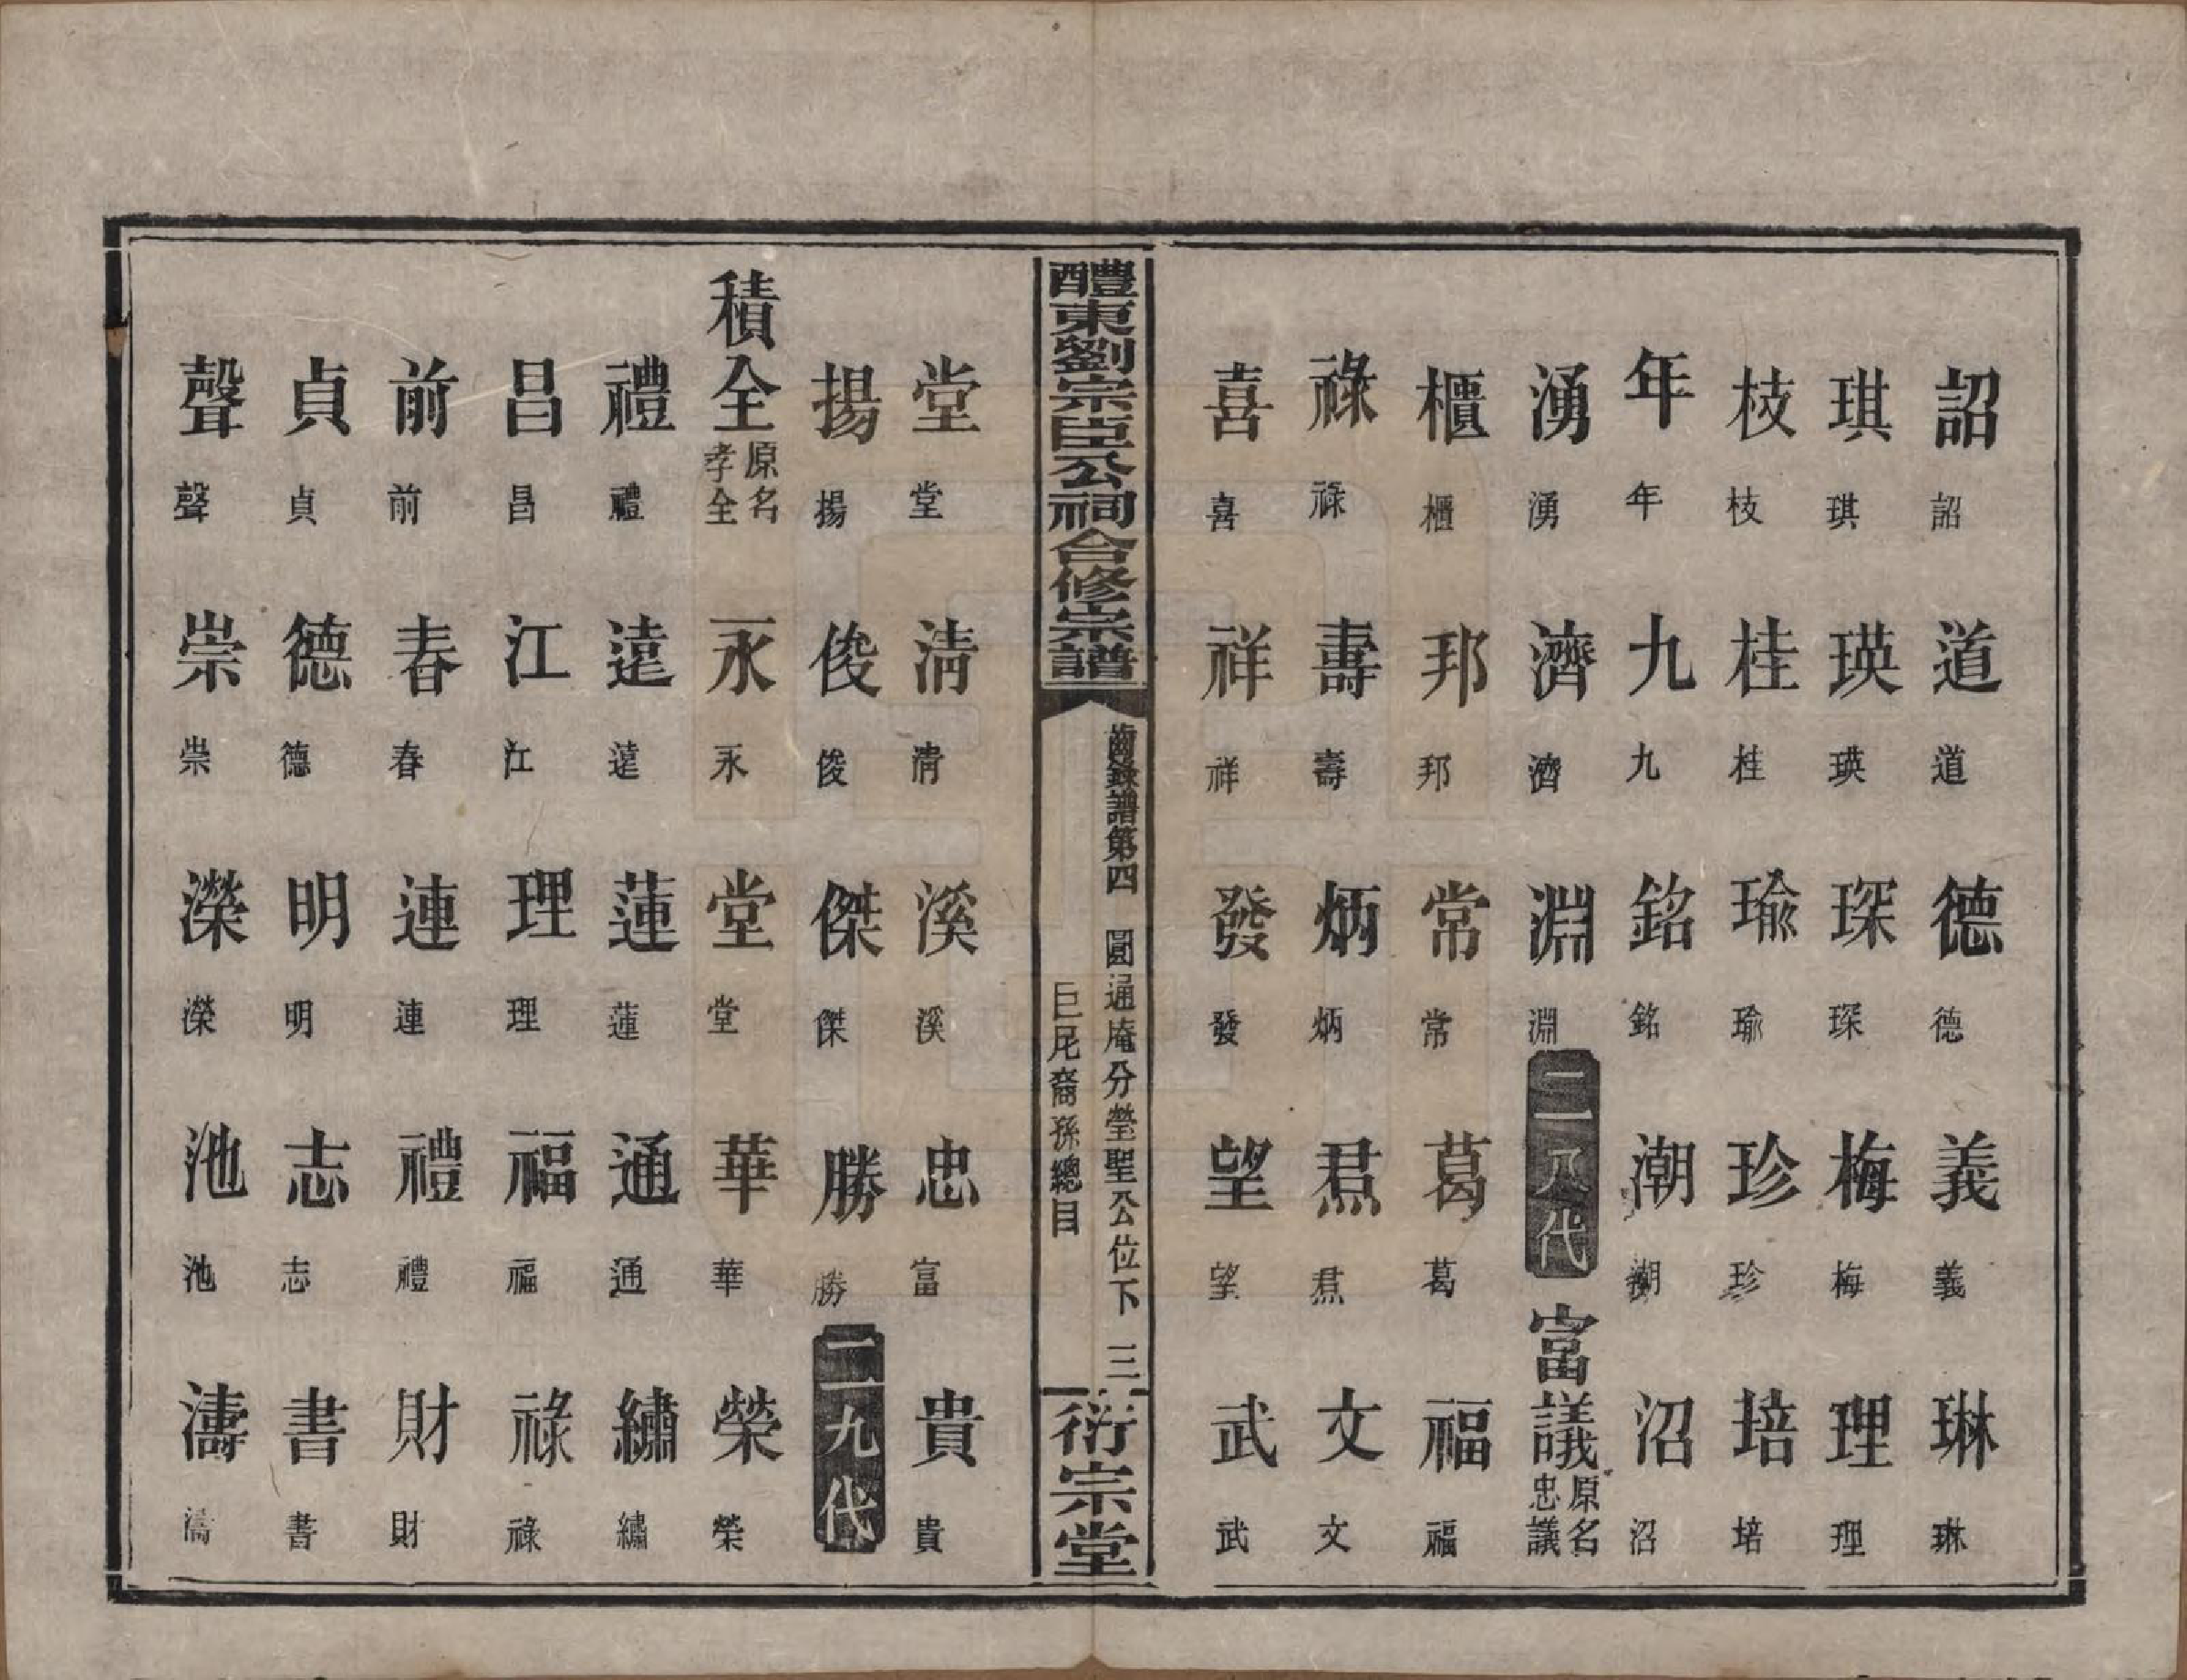 詔 詔 道 道 德 德 義 義 琳 琳
琪 琪 瑛 瑛 琛 琛 梅 梅 理 理
枝 枝 桂 桂 瑜 瑜 珍 珍 培 培
年 年 九 九 銘 銘 潮 潮 沼 沼
湧 湧 濟 濟 淵 淵 二八代 富議 原名忠議
櫃 櫃 邦 邦 常 常 葛 葛 福 福
祿 祿 壽 壽 炳 炳 焄 焄 文 文
喜 喜 祥 祥 發 發 望 望 武 武
醴東劉宗臣公祠合修宗譜
齒錄譜第四 圓通庵分塋聖公位下 三
巨尾裔孫總目
衍宗堂
堂 堂 清 清 溪 溪 忠 富 貴 貴
揚 揚 俊 俊 傑 傑 勝 勝 二九代
積全 原名孝全 永 永 堂 堂 華 華 榮 榮
禮 禮 遠 遠 蓮 蓮 通 通 繡 繡
昌 昌 江 江 理 理 福 福 祿 祿
前 前 春 春 連 連 禮 禮 財 財
貞 貞 德 德 明 明 志 志 書 書
聲 聲 崇 崇 濚 濚 池 池 濤 濤